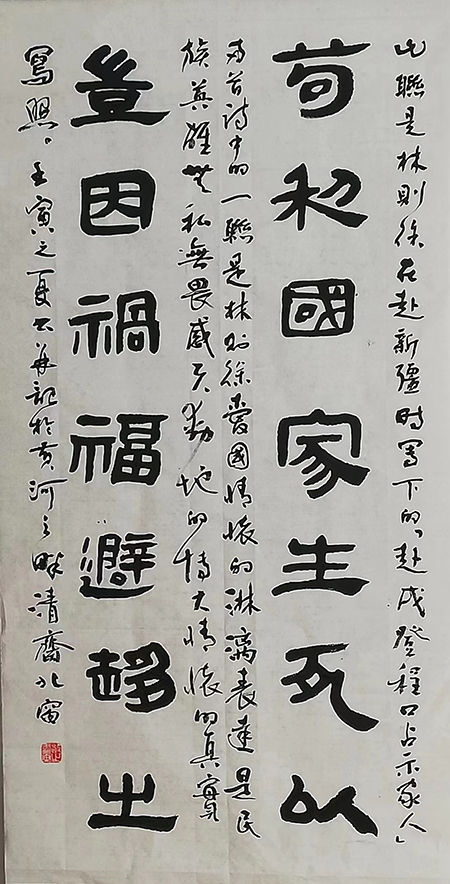 此聯是林則徐在赴新疆時寫下的「赴戍登程口占示家人」
苟利國家生死以
首詩中的一聯是林則徐愛國情懷的淋漓表達是民
族英雄無私無畏感天動地的博大情懷的真實
豈因禍福避趍之
寫照。壬寅之夏書并記於黃河之畔清齋北窗